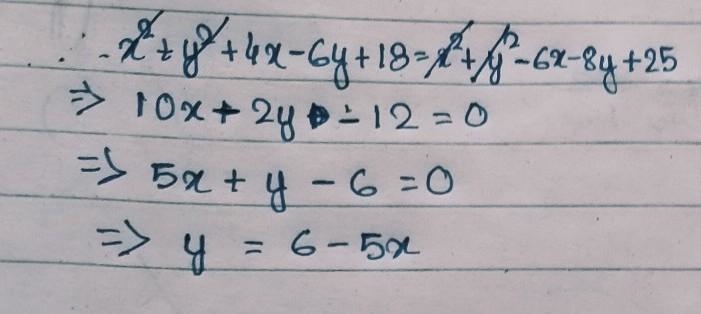 ∴ x²+y²+4x-6y+18=x²+y²-6x-8y+25
⇒ 10x+2y-12=0
⇒ 5x+y-6=0
⇒ y = 6-5x